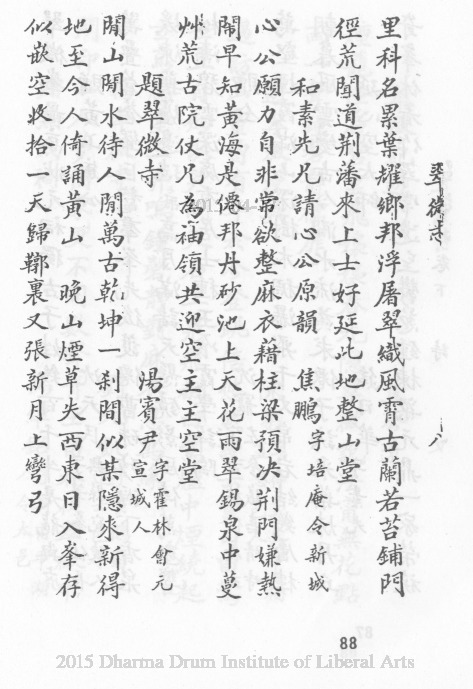 翠微志 八
里科名累葉耀鄉邦浮屠翠織風霄古蘭若苔鋪門
徑荒聞道荆藩來上士好延此地整山堂
和素先兄請心公原韻 焦鵬 字培庵令新城
心公願力自非常欲整麻衣藉柱梁預決荆門嫌熱
鬧早知黃海是僊邦丹砂池上天花雨翠錫泉中蔓
艸荒古院仗兄為袖領共迎空主主空堂
題翠微寺 湯賓尹 字霍林會元
宣城人
閒山閒水待人閒萬古乾坤一刹間似某隱來新得
地至今人倚誦黃山 晚山煙草失西東日入峯存
似嵌空收拾一天歸裏又張新月上彎弓
88
2015 Dharma Drum Institute of Liberal Arts